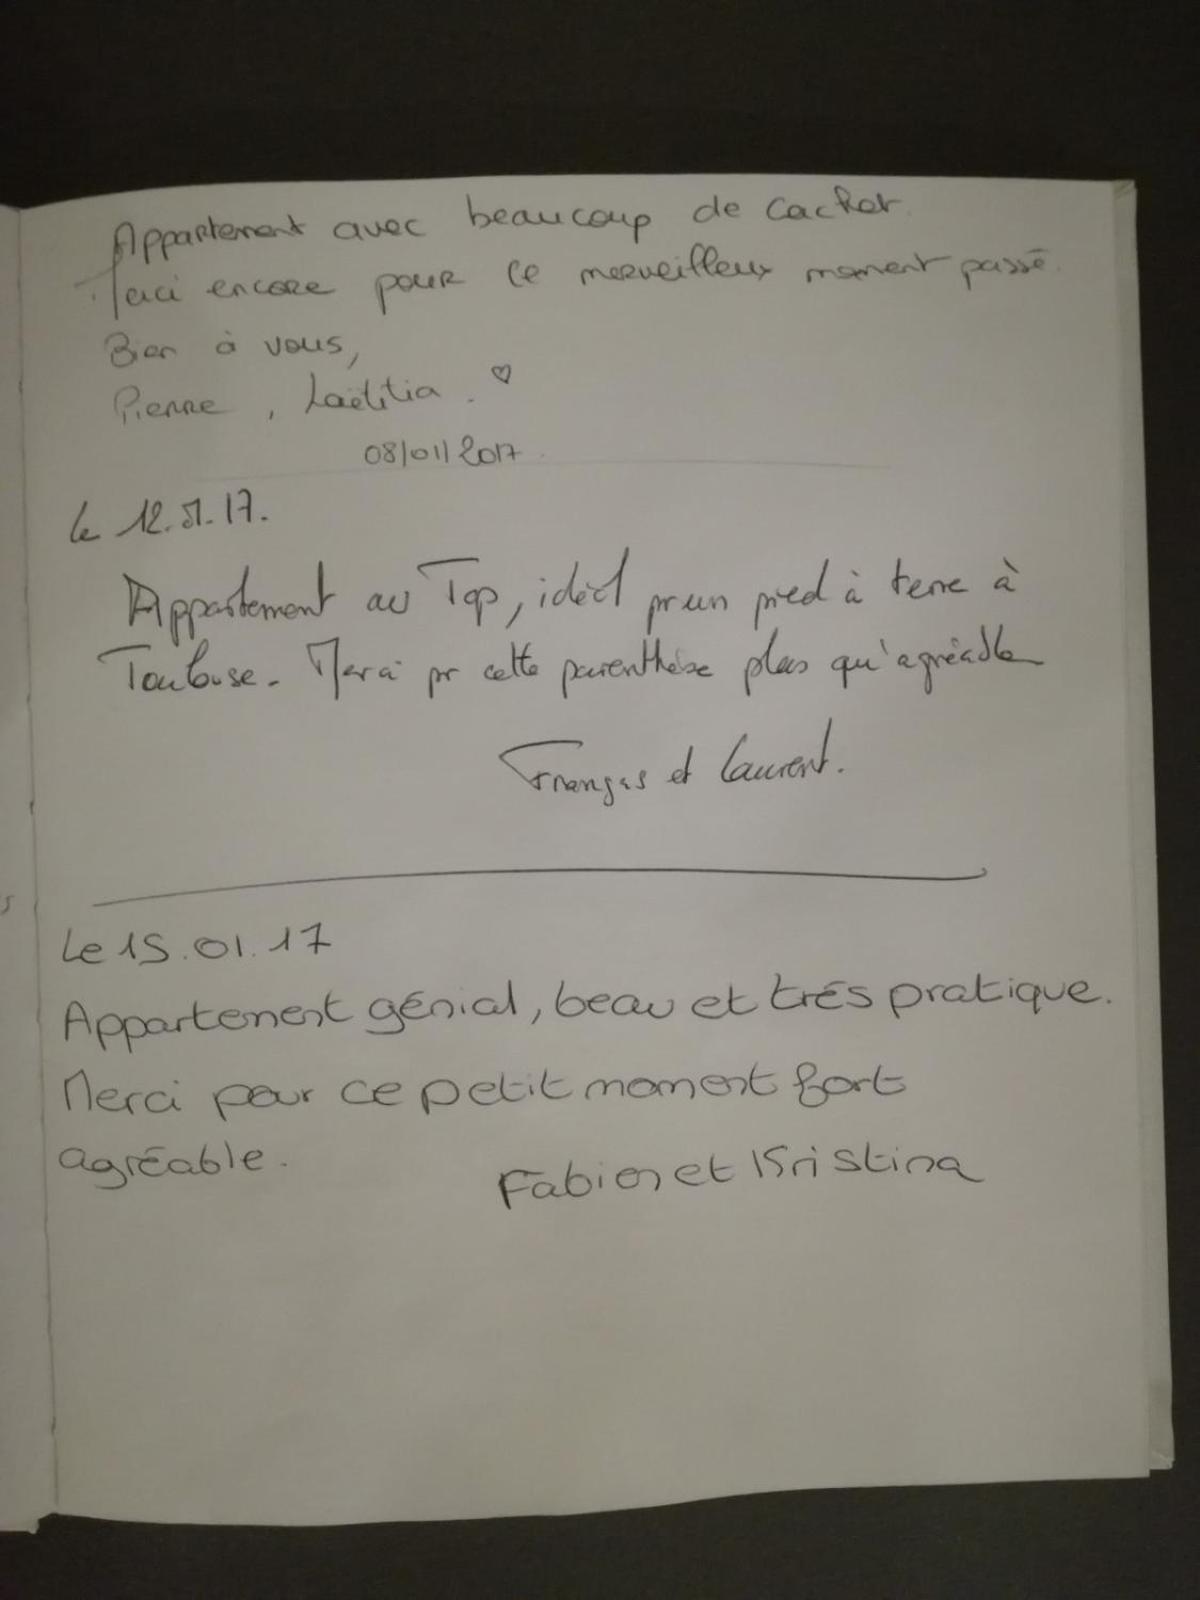 Appartement avec beaucoup de cachet.
Merci encore pour ce merveilleux moment passé.
Bien à vous,
Pierre, Laëtitia. ♡
08/01/2017
Le 12.01.17.
Appartement au Top, idéal pr un pied à terre à
Toulouse. Merci pr cette parenthèse plus qu'agréable
et Laurent.
Le 15.01.17
Appartement génial, beau et très pratique.
Merci pour ce petit moment fort
agréable.
Fabien et Kristina